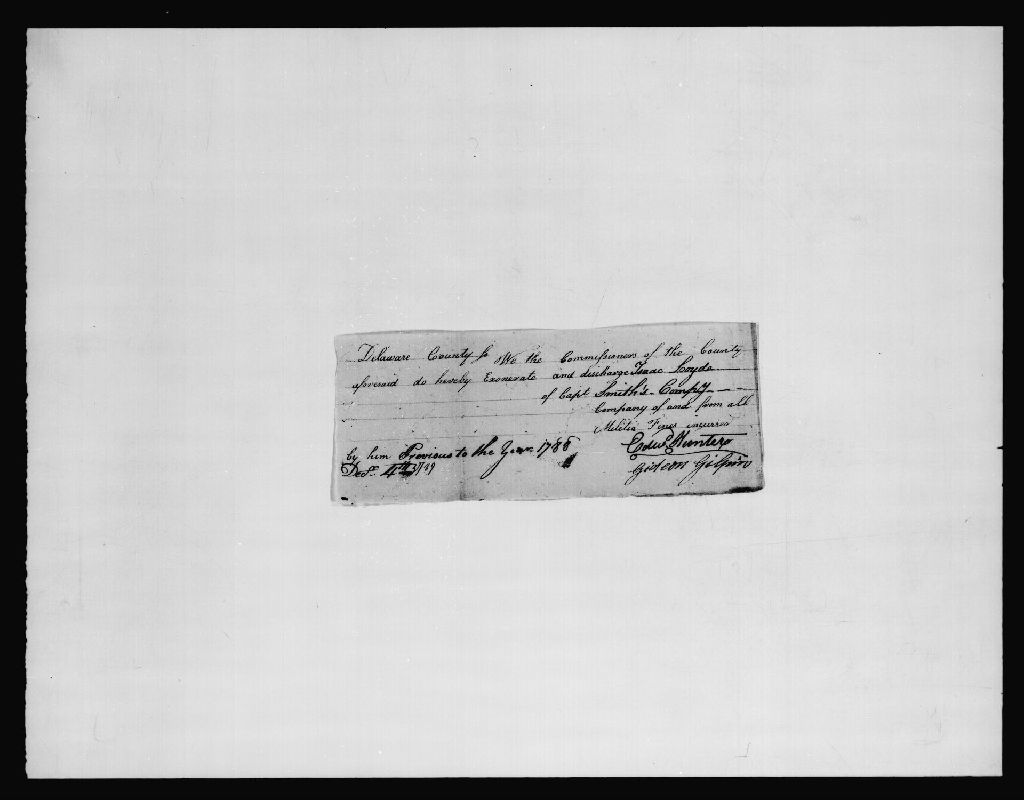 Delaware County ss We the Commissioners of the County
aforesaid do hereby Exonerate and discharge Isaac Loyde
of Capt Smith's Compy
Company of and from all
Militia Fines incurred
by him Previous to the Year 1788
Edwd Hunter
Decr 4th 1789
Gideon Gilpin